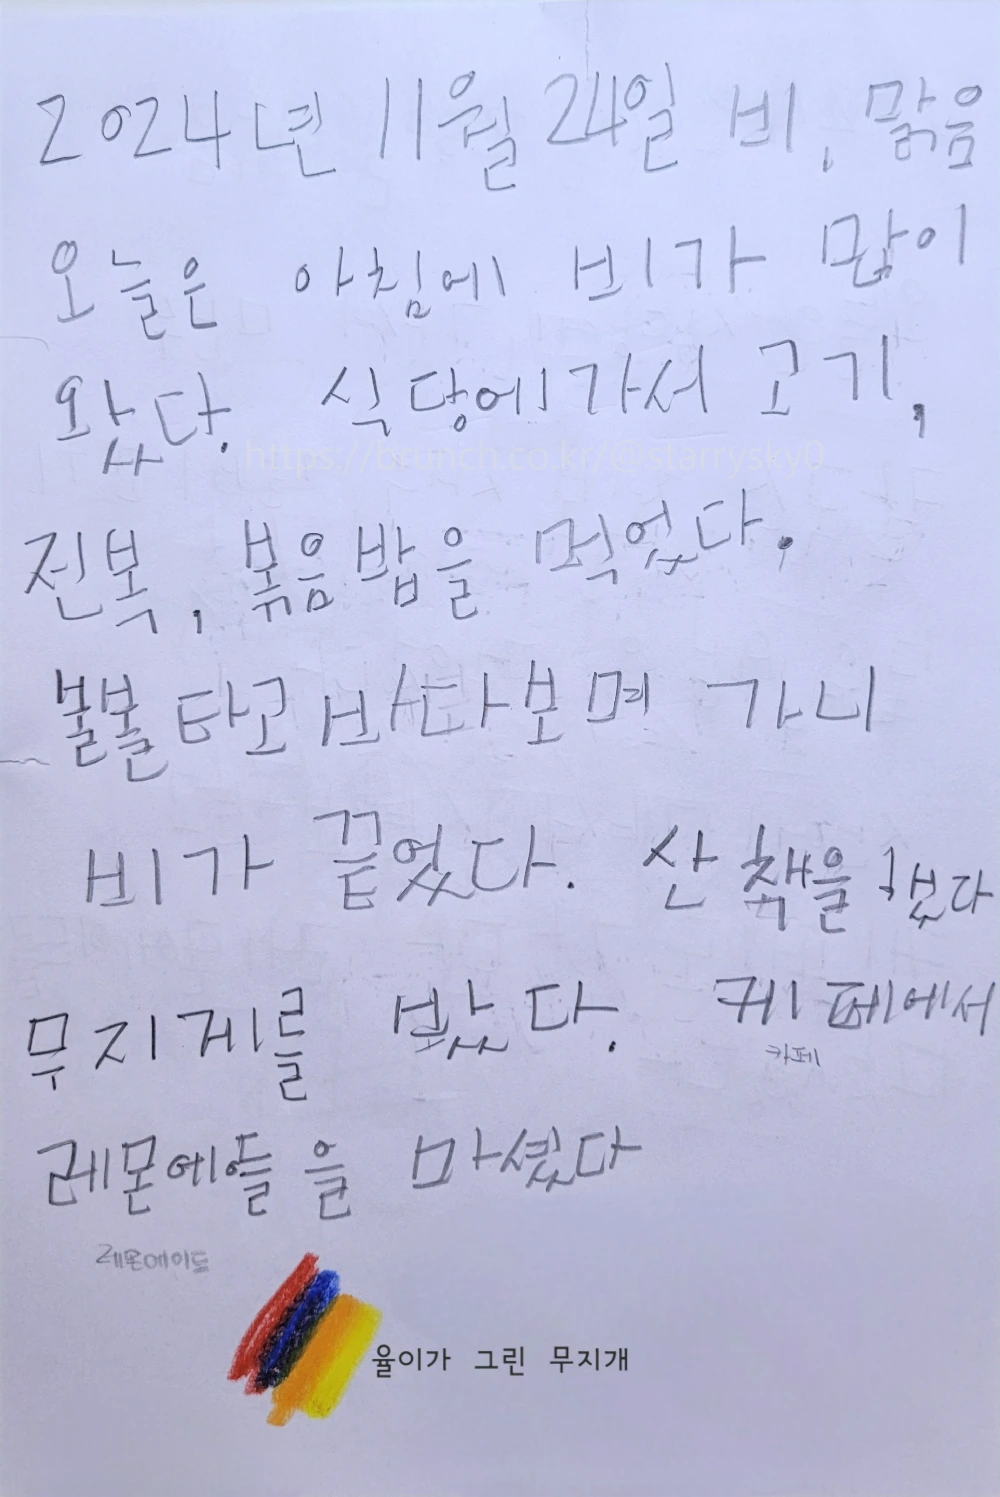 2024년 11월 24일 비, 맑음
오늘은 아침에 비가 많이
왔다. 식당에가서 고기,
https://brunch.co.kr/@starrysky0
전복, 볶음밥을 먹었다.
붙붙타고바다보며 가니
비가 끝었다. 산책을 했다
무지게를 봤다. 케페에서
카페
레몬에이들을 마셨다
레몬에이드
율이가 그린 무지개